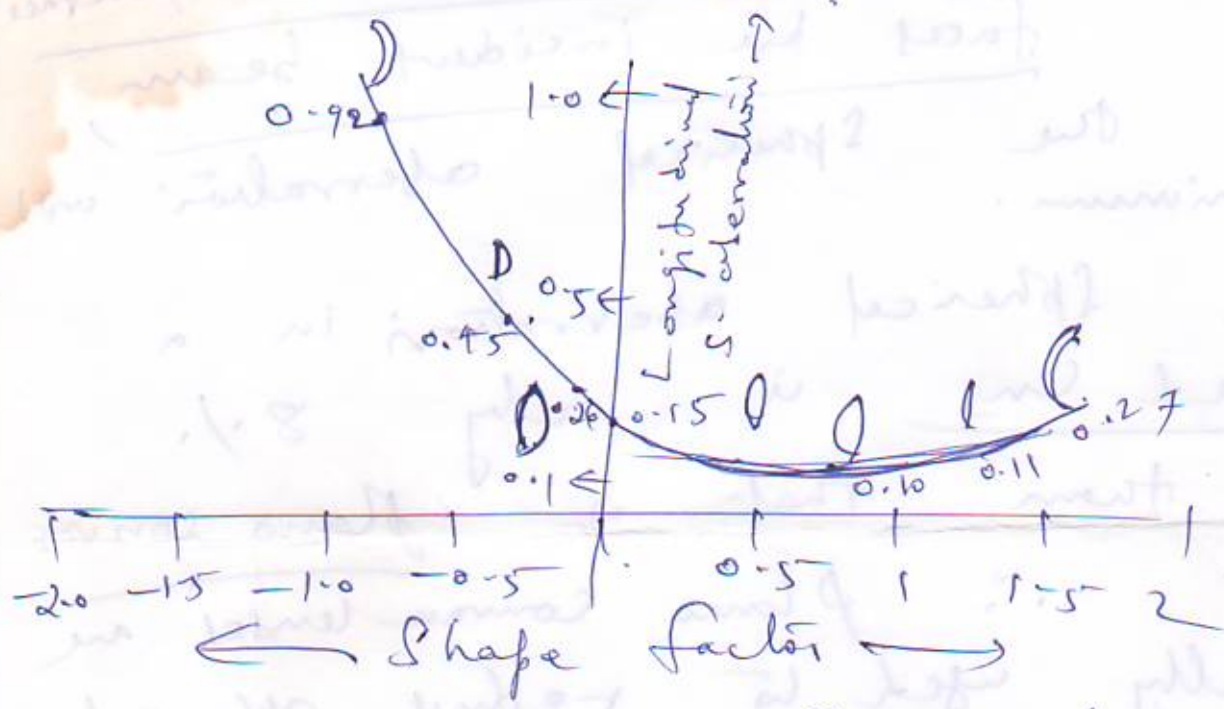 0.92
1.0
Longitudinal
s-aberration
D
0.5
0.45
0.26
0.15
0.1
0.10
0.11
0.27
-2.0 -1.5 -1.0 -0.5 0.5 1 1.5 2
Shape factor